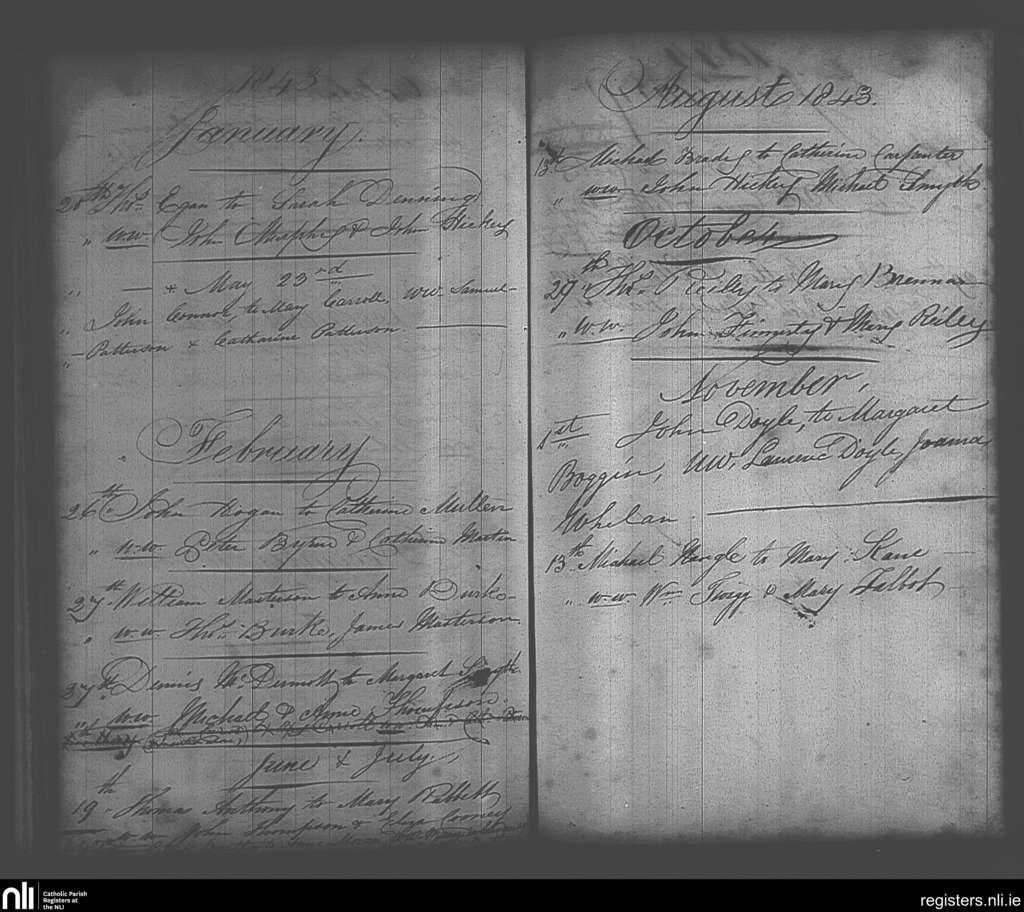 1843
January.
28th Thos. Egan to Sarah Denning
" w.w. John Murphy & John Hickey
" — + May 23rd
" John Connor, to Mary Carroll, ww. Samuel-
" -Patterson & Catharine Patterson.
February
26th John Hogan to Catherine Mullen
" w.w. Peter Byrne & Catherine Martin
27th William Masterson to Anne Burke-
" w.w. Thos. Burke, James Masterson
Dennis McDermott to Margaret Smyth
" w.w. Michael & Anne Thompson.
June & July.
19th Thomas Anthony to Mary Rabbett
w.w. John Thompson & Eliza Cooney
August 1843.
13th Michael Brady to Catherine Carpenter
" w.w. John Hickey Michael Smyth.
October
29th Thos. Reiley to Mary Brennan
" w.w. John & Mary Riley
November,
1st John Doyle, to Margaret
Boggin, ww. Laurence Doyle, Joanna
Whelan.
13th Michael Nangle to Mary Kane
" w.w. Wm. Twigg & Mary Talbot
nli
Catholic Parish
Registers at
the NLI
registers.nli.ie